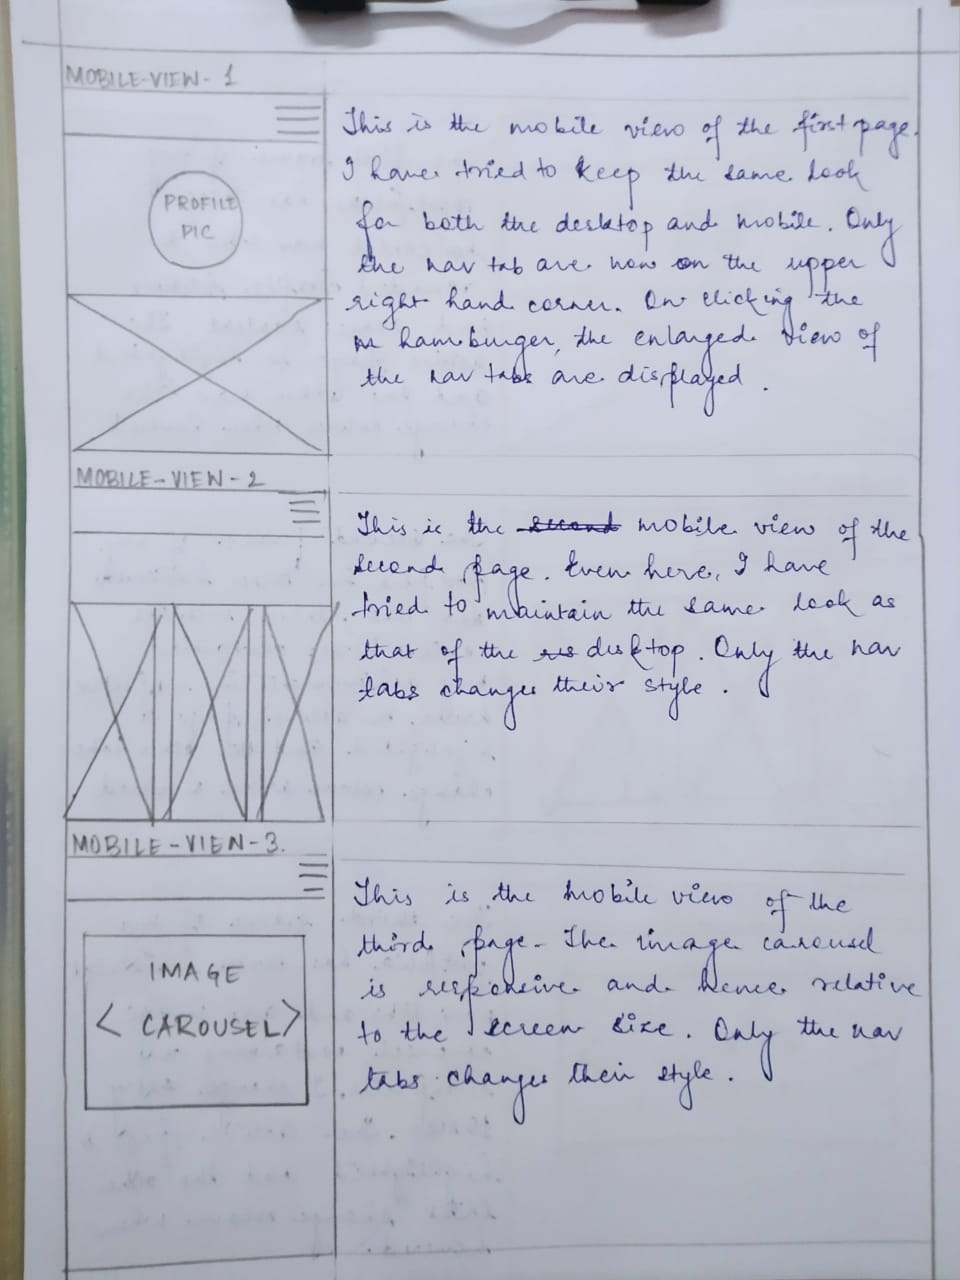 MOBILE-VIEW- 1
PROFILE
PIC
This is the mobile view of the first page.
I have tried to keep the same look
for both the desktop and mobile. Only
the nav tab are now on the upper
right hand corner. On clicking the
hamburger, the enlarged view of
the nav tabs are displayed.
MOBILE-VIEW-2
This is the second mobile view of the
second page. Even here, I have
tried to maintain the same look as
that of the desktop. Only the nav
tabs changes their style.
MOBILE-VIEW-3.
IMAGE
< CAROUSEL >
This is the mobile view of the
third page. The image carousel
is responsive and hence relative
to the screen size. Only the nav
tabs changes their style.